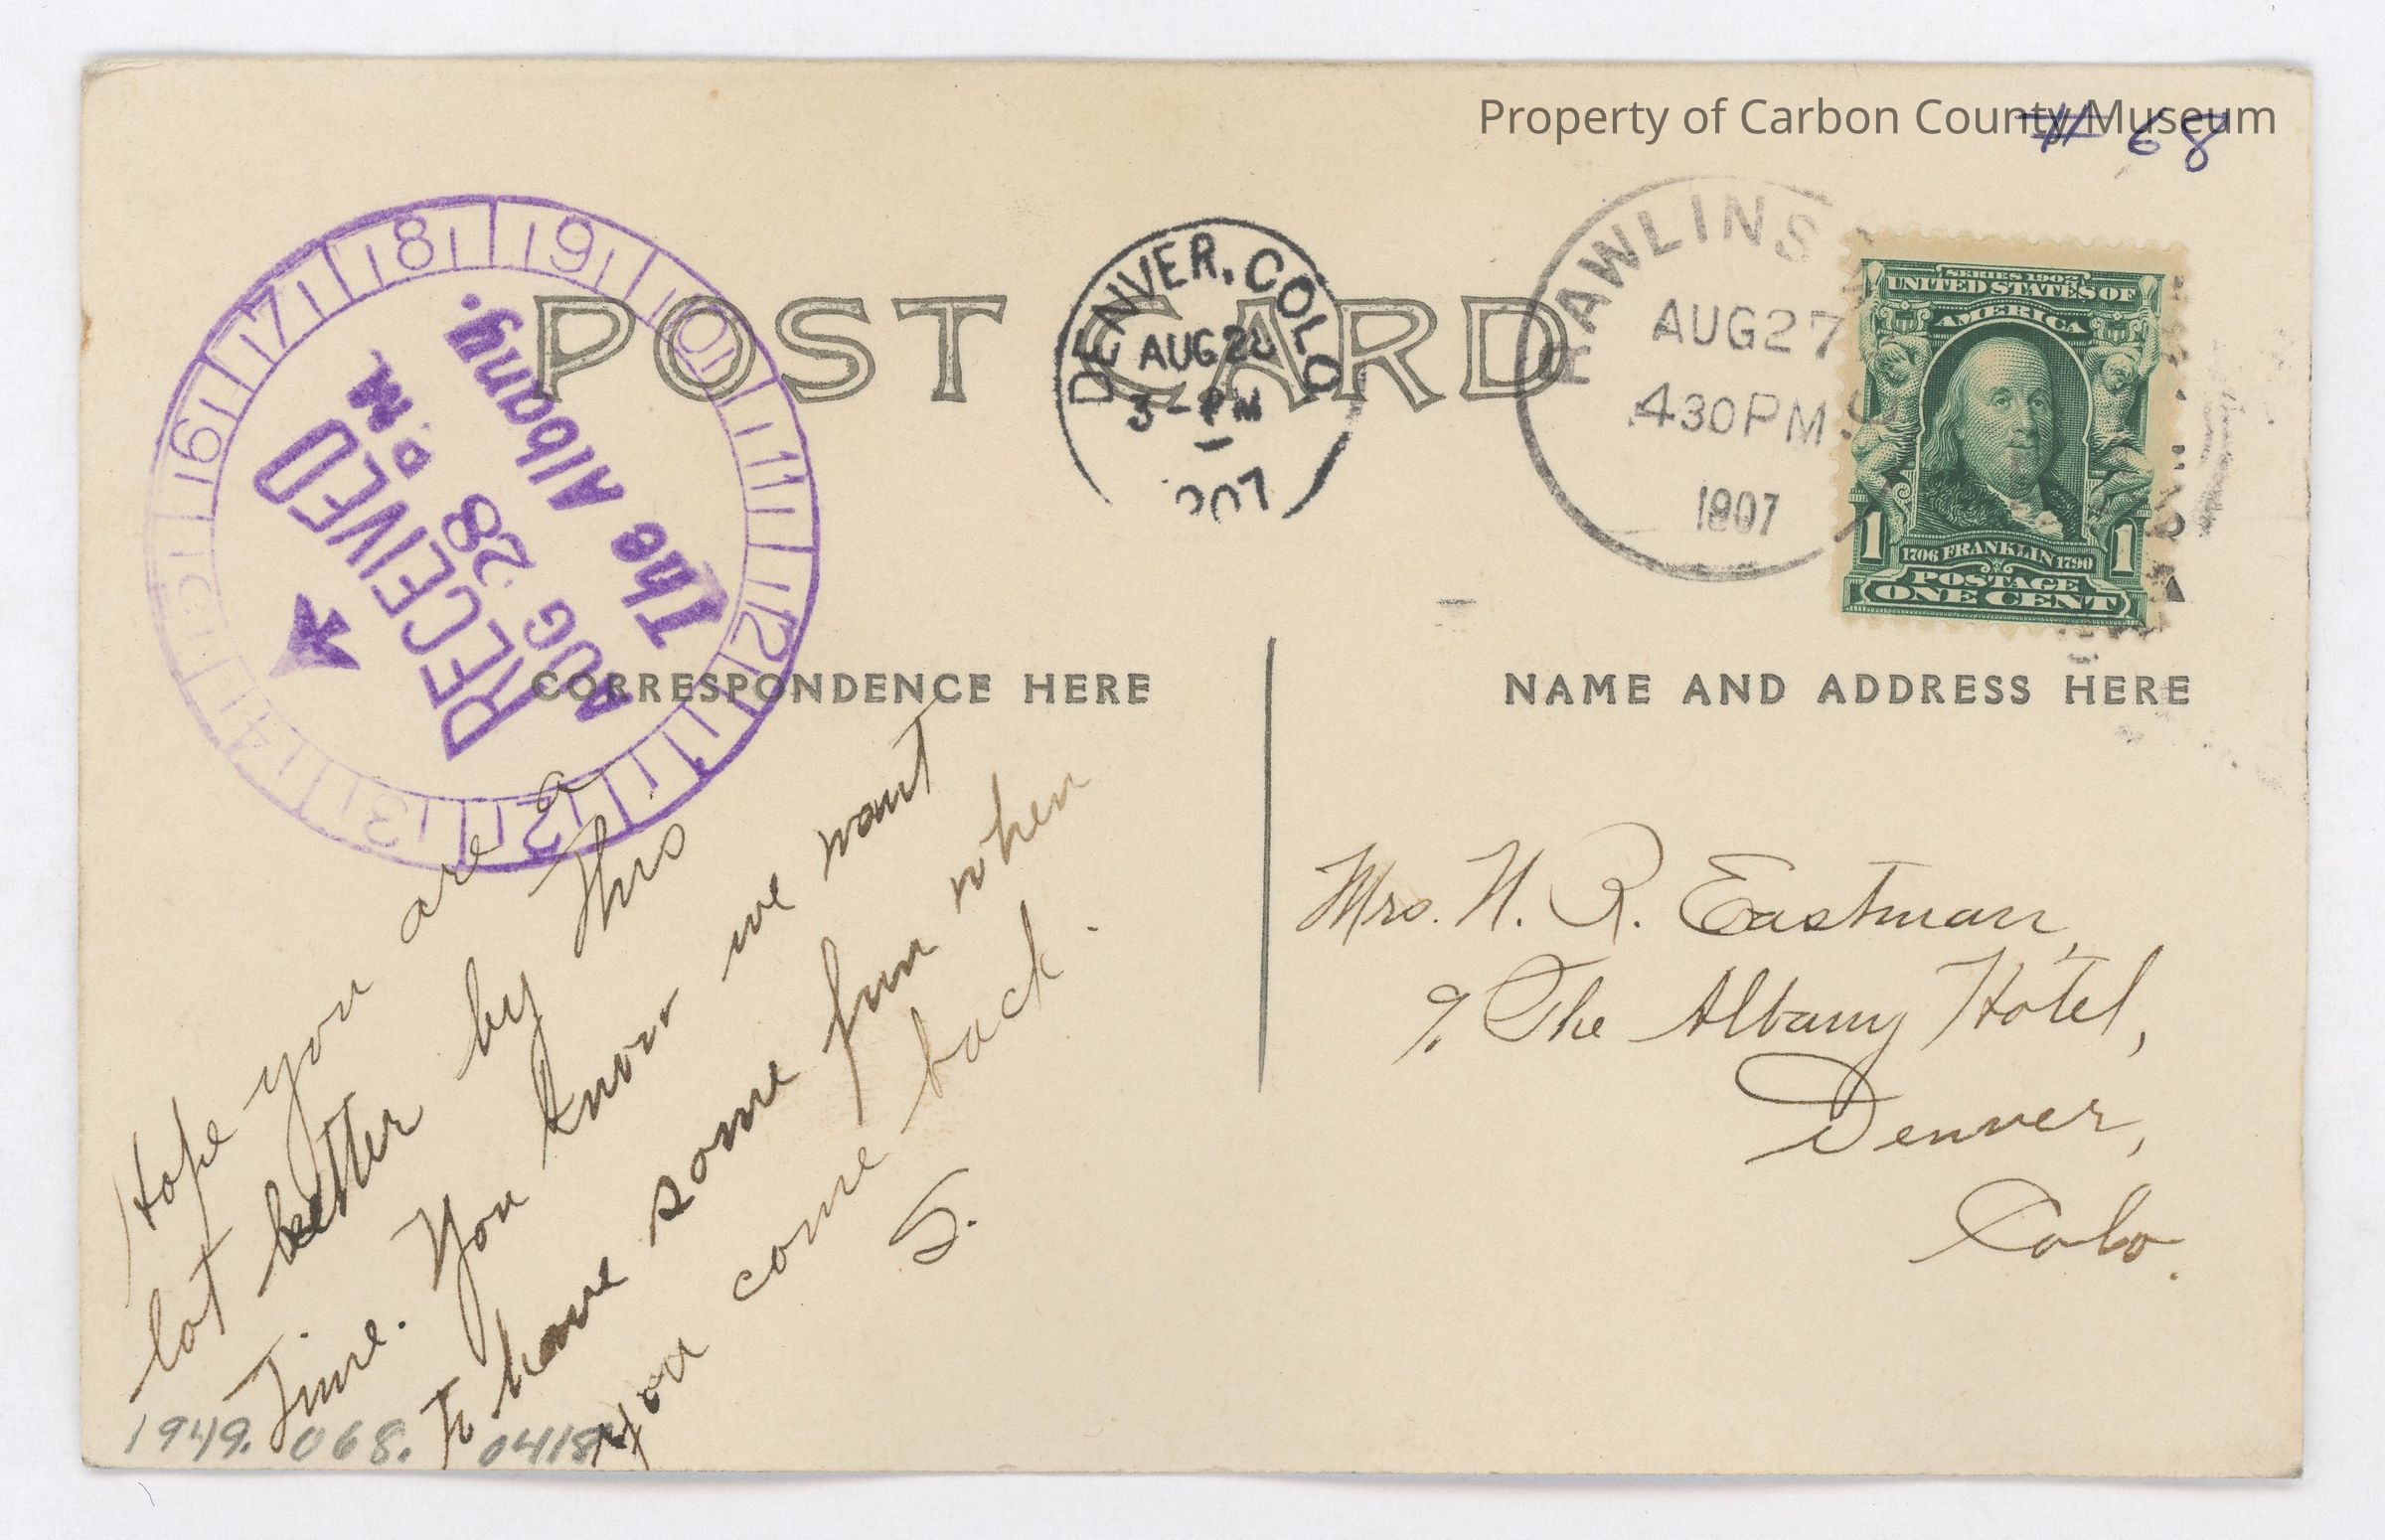 Property of Carbon County Museum
# 68
POST CARD
RECEIVED
AUG 28 P.M.
The Albany.
6 7 8 9 10 11 12 1 2 3 4
DENVER, COLO
AUG 28
3 - PM
907
RAWLINS
AUG 27
430 PM
1907
SERIES 1902
UNITED STATES OF
AMERICA
1 1
1706 FRANKLIN 1790
POSTAGE
ONE CENT
CORRESPONDENCE HERE
NAME AND ADDRESS HERE
Hope you are a
lot better by this
Time. You know we want
to have some fun when
you come back.
S.
Mrs. N. R. Eastman,
% The Albany Hotel,
Denver,
Colo.
1949. 068. 0418